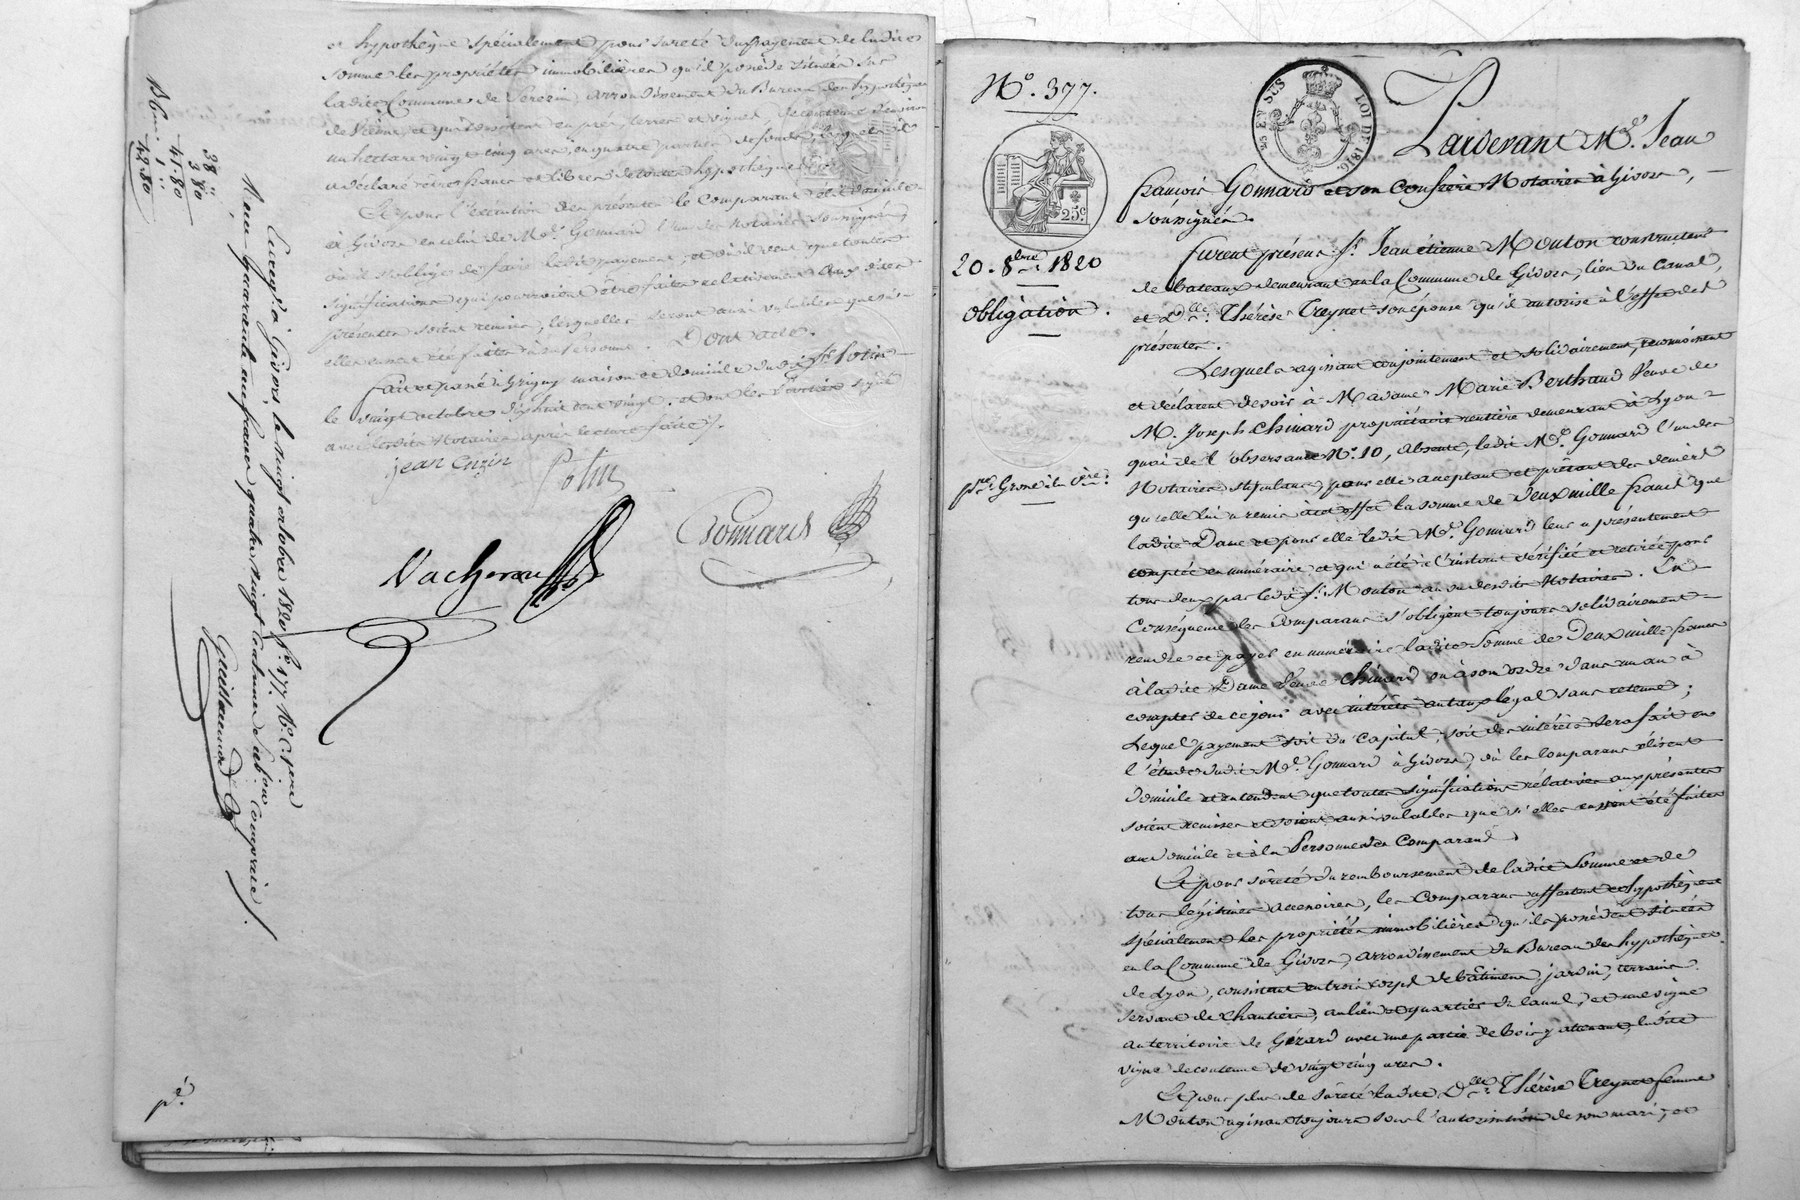 et hypothèque spécialement pour sureté du payement de ladite
somme les propriétés immobilières qu'il possède situées sur
ladite Commune de Serezin, arrondissement du Bureau des hypothèques
de Vienne, et qui consistent en prés, terres et vignes, de contenue d'environ
un hectare vingt cinq ares, en quatre parties de fonds, lesquels il
a déclaré être francs et libres de toute hypothèque
Et pour l'exécution des présentes le comparant élit domicile
à Givors en celui de Me. Gonnard l'un des Notaires soussignés
où il s'oblige de faire ledit payement, et où il veut que toutes
significations qui pourroient être faites relativement aux dites
présentes soient remises, lesquelles seront aussi valables que si
elles eussent été faites à sa personne. Dont acte.
Fait et passé à Grigny maison et domicile dudit Sr. Potin
le vingt octobre dix huit cent vingt. et ont les parties signé
avec lesdits Notaires après lecture faite.
jean Cuzin Potin
Gonnard
Vacheron
38 "
3 80
41. 80
Bon 1 "
42. 80
Enregé. à Givors le vingt octobre 1820 fo. 177. Ro. C. 7
Reçu quarante un francs quatre vingt centimes subon. compris.
Guillaumod
pé.
No. 377.
25 EN SUS
LOI DE 1816.
25c
20. 8bre 1820
obligation.
pre. Grosse à la cère.
Pardevant Me. Jean
François Gonnard et son Confrère Notaires à Givors,
soussignés.
Furent présens Sr. Jean étienne Mouton constructeur
de bateaux demeurant en la Commune de Givors, lieu du Canal,
et Dlle. Thérèse Treynet son épouse qu'il autorise à l'effet des
présentes.
Lesquels agissant conjointement et solidairement, reconnoissent
et déclarent devoir à Madame Marie Berthaud Veuve de
M. Joseph Chinard propriétaire rentière demeurant à Lyon
quai de l'observance No. 10, absente, ledit Me. Gonnard l'un des
Notaires stipulant pour elle acceptant et prêtant des deniers
qu'elle lui a remis à cet effet la somme de Deux mille francs que
ladite Dame et pour elle ledit Me. Gonnard leur a présentement
comptée en numéraire et qui a été à l'instant vérifiée et retirée pour
tous deux par ledit Sr. Mouton au vu desdits Notaires. En
Conséquence les Comparans s'obligent toujours solidairement
rendre et payer en numéraire ladite Somme de Deux mille francs
à ladite Dame Veuve Chinard ou à son ordre dans un an à
compter de ce jour avec intérêts au taux légal sans retenue;
Lequel payement soit du Capital, soit des intérêts sera fait en
l'étude dudit Me. Gonnard à Givors, où les comparans élisent
domicile et entendent que toutes significations rélatives aux présentes
soient remises et soient aussi valables que si elles eussent été faites
au domicile et à la Personne des Comparans
Et pour sûreté du remboursement de ladite Somme et de
tous légitimes accessoires, les Comparans affectent et hypothèquent
spécialement les propriétés immobilières qu'ils possèdent situées
en la Commune de Givors, arrondissement du Bureau des hypothèques
de Lyon, consistant en trois corps de bâtimens, jardin, terrains
servant de chantiers, au lieu et quartier du Canal, et une vigne
au territoire de Gérard avec une partie de bois y attenant, ladite
vigne de contenue de vingt cinq ares.
Et pour plus de sûreté ladite Dlle. Thérèse Treynet femme
Mouton agissant toujours sous l'autorisation de son mari, et